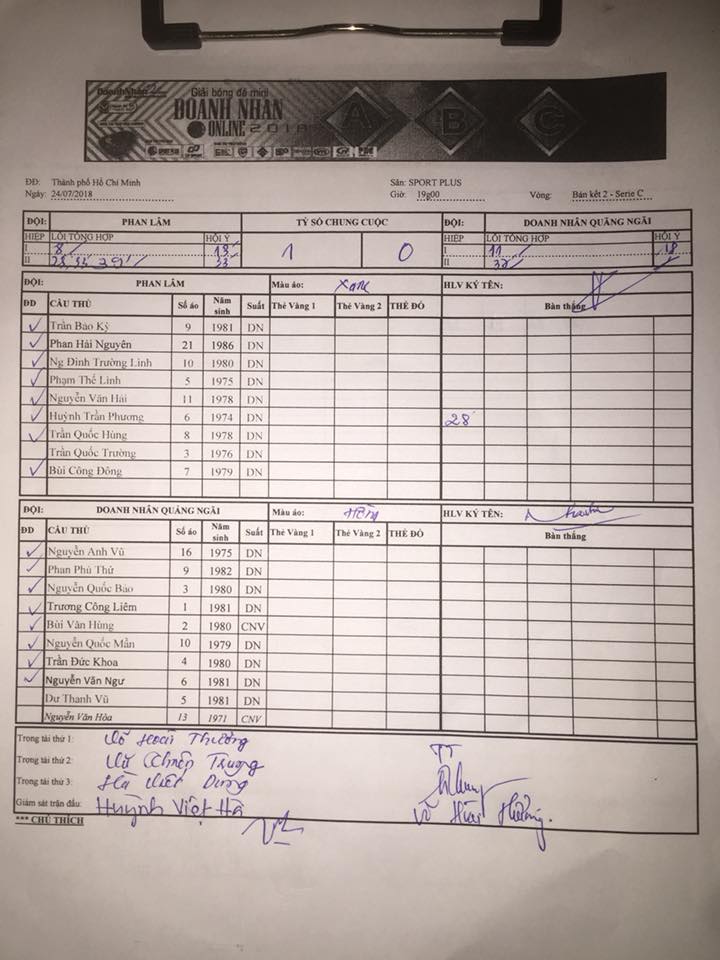 DoanhNhân
Giải bóng đá mini
DOANH NHÂN
ONLINE 2018
A B C
ĐĐ: Thành phố Hồ Chí Minh Sân: SPORT PLUS
Ngày: 24/07/2018 Giờ: 19g00 Vòng: Bán kết 2 - Serie C
ĐỘI: PHAN LÂM TỶ SỐ CHUNG CUỘC ĐỘI: DOANH NHÂN QUÃNG NGÃI
HIỆP LỖI TỔNG HỢP HỘI Ý 1 0 HIỆP LỖI TỔNG HỢP HỘI Ý
I 8' 18' I 11' 18
II 33 II
ĐỘI: PHAN LÂM Màu áo: Xanh HLV KÝ TÊN:
ĐD CẦU THỦ Số áo Năm sinh Suất Thẻ Vàng 1 Thẻ Vàng 2 THẺ ĐỎ Bàn thắng
Trần Bảo Kỳ 9 1981 DN
Phan Hải Nguyên 21 1986 DN
Ng Đình Trường Linh 10 1980 DN
Phạm Thế Linh 5 1975 DN
Nguyễn Văn Hải 11 1978 DN
Huỳnh Trần Phương 6 1974 DN 28'
Trần Quốc Hùng 8 1978 DN
Trần Quốc Trường 3 1976 DN
Bùi Công Đông 7 1979 DN
ĐỘI: DOANH NHÂN QUẢNG NGÃI Màu áo: Hồng HLV KÝ TÊN:
ĐD CẦU THỦ Số áo Năm sinh Suất Thẻ Vàng 1 Thẻ Vàng 2 THẺ ĐỎ Bàn thắng
Nguyễn Anh Vũ 16 1975 DN
Phan Phú Thứ 9 1982 DN
Nguyễn Quốc Bảo 3 1980 DN
Trương Công Liêm 1 1981 DN
Bùi Văn Hùng 2 1980 CNV
Nguyễn Quốc Mẫn 10 1979 DN
Trần Đức Khoa 4 1980 DN
Nguyễn Văn Ngư 6 1981 DN
Dư Thanh Vũ 5 1981 DN
Nguyễn Văn Hòa 13 1971 CNV
Trọng tài thứ 1: Võ Hoài Thưởng
Trọng tài thứ 2: Trung TT
Trọng tài thứ 3: Hà Việt Dũng
Giám sát trận đấu: Huỳnh Việt Hà Võ Hoài Thưởng.
*** CHÚ THÍCH